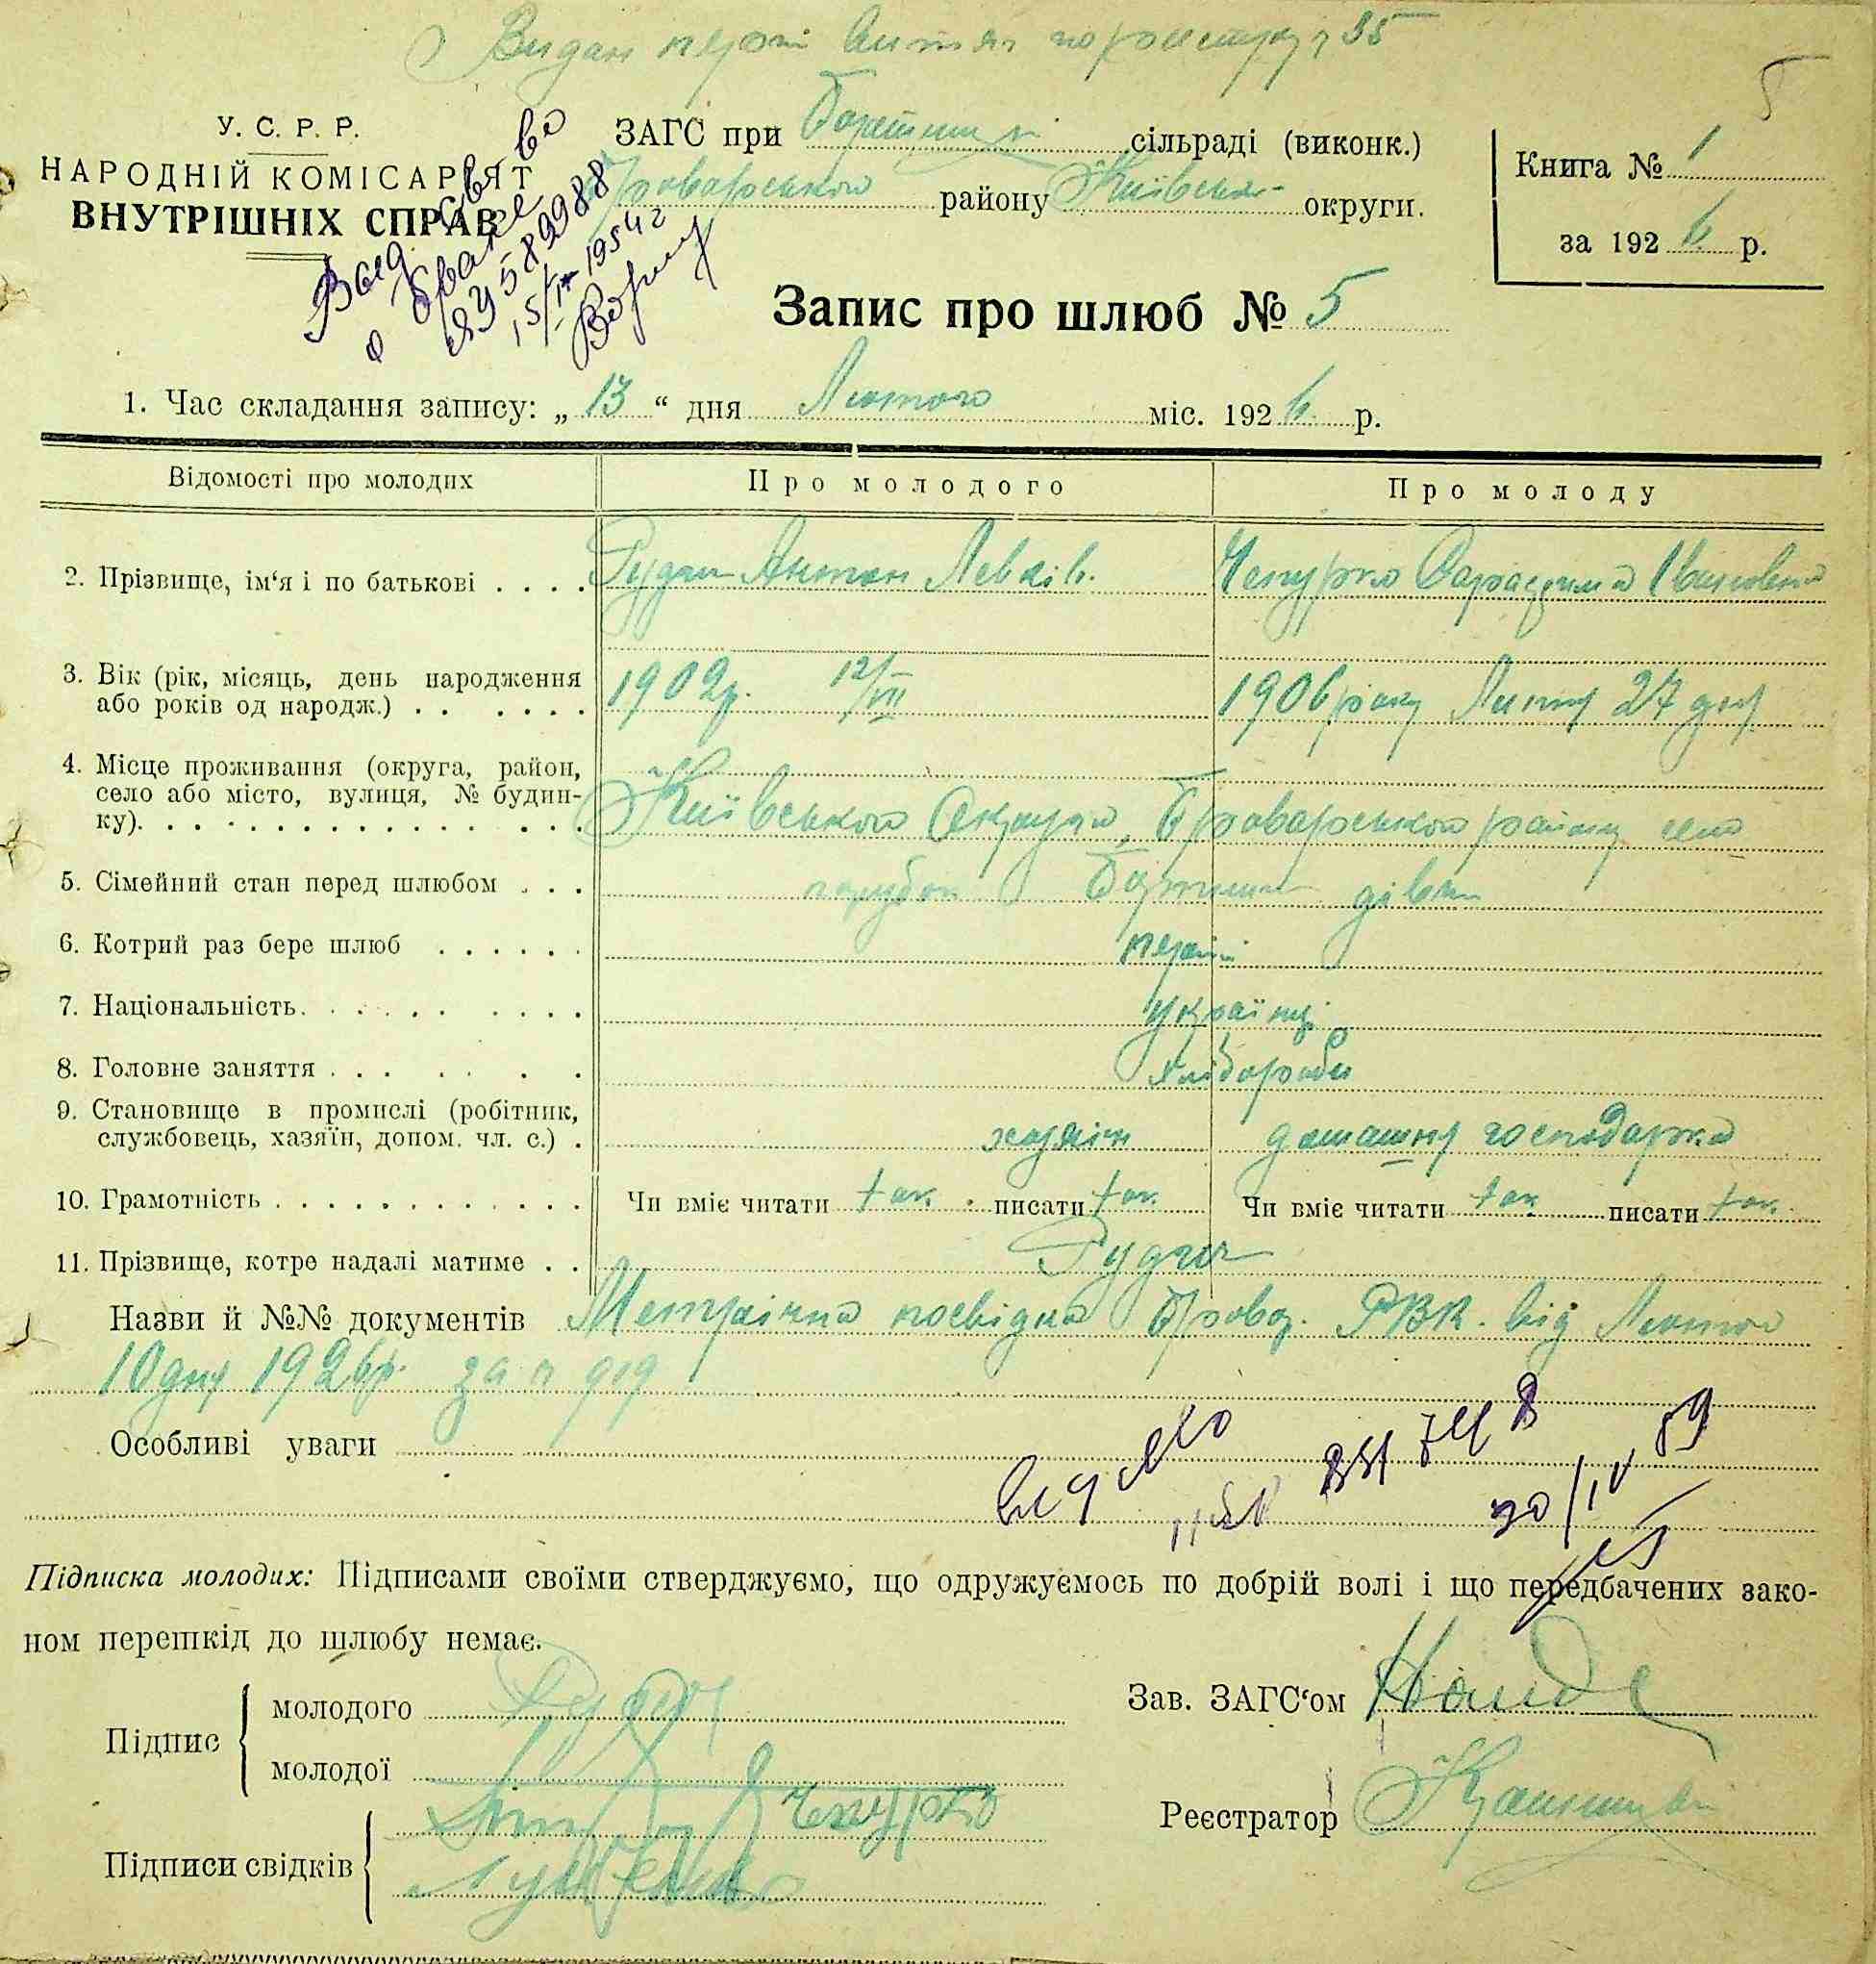 Видан витяг по реєстру 35
5
У. С. Р. Р.
НАРОДНІЙ КОМІСАРІЯТ
ВНУТРІШНІХ СПРАВ
ЗАГС при сільраді (виконк.)
Броварського району Київської округи.
Книга № 1
за 1926 р.
Выд. св во
о браке
ЯУ 589988
15/IX 1954 г
Запис про шлюб № 5
1. Час складання запису: „ 13 “ дня Лютого міс. 1926 р.
Відомості про молодих
Про молодого
Про молоду
2. Прізвище, ім‘я і по батькові . . . . Антон Левків. Чепурко Івановна
3. Вік (рік, місяць, день народження
або років од народж.) . . . . . . 1902р. 12/VII 1906 року 27 дня
4. Місце проживання (округа, район,
село або місто, вулиця, № будин-
ку). . . . . . . . . . . . . . . Київського Округа, Броварського району село
5. Сімейний стан перед шлюбом . . . парубок дівка
6. Котрий раз бере шлюб . . . . . . перший
7. Національність. . . . . . . . . . українці
8. Головне заняття . . . . . . . хлібороби
9. Становище в промислі (робітник,
службовець, хазяїн, допом. чл. с.) . хазяїн домашня господарка
10. Грамотність . . . . . . . . . . . . . Чи вміє читати так. писати так. Чи вміє читати так писати так.
11. Прізвище, котре надалі матиме . .
Назви й №№ документів Метрична посвідка Бровар. РВК. від Лютого
10 дня 1926р. за № 919
Особливі уваги
30/IV 89
Підписка молодих: Підписами своїми стверджуємо, що одружуємось по добрій волі і що передбачених зако-
ном перешкід до шлюбу немає.
Підпис
молодого
молодої
Чепурко
Підписи свідків
Зав. ЗАГС‘ом
Реєстратор